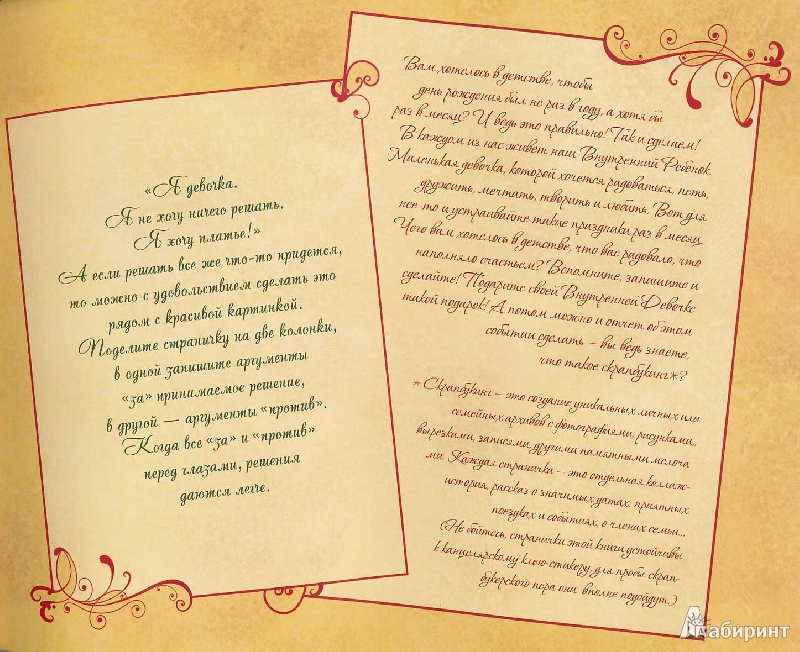 «Я девочка.
Я не хочу ничего решать.
Я хочу платье!»
А если решать все же что-то придется,
то можно с удовольствием сделать это
рядом с красивой картинкой.
Поделите страничку на две колонки,
в одной запишите аргументы
"за" принимаемое решение,
в другой — аргументы "против".
Когда все "за" и "против"
перед глазами, решения
даются легче.
Вам хотелось в детстве, чтобы
день рождения был не раз в году, а хотя бы
раз в месяц? И ведь это правильно! Так и сделаем!
В каждом из нас живет наш Внутренний Ребенок.
Маленькая девочка, которой хочется радоваться, петь,
дружить, мечтать, творить и любить. Вот для
нее-то и устраивайте такие праздники раз в месяц.
Чего вам хотелось в детстве, что вас радовало, что
наполняло счастьем? Вспомните, запишите и
сделайте! Подарите своей Внутренней Девочке
такой подарок! А потом можно и отчет об этом
событии сделать – вы ведь знаете,
что такое скрапбукинг*?
* Скрапбукинг – это создание уникальных личных или
семейных архивов с фотографиями, рисунками,
вырезками, записями, другими памятными мелоча-
ми. Каждая страничка – это отдельная коллаж-
история, рассказ о значимых датах, приятных
поездках и событиях, о членах семьи...
(Не бойтесь, странички этой книги устойчивы
к канцелярскому клею-стикеру, для пробы скрап-
букерского пера они вполне подойдут.)
Лабиринт